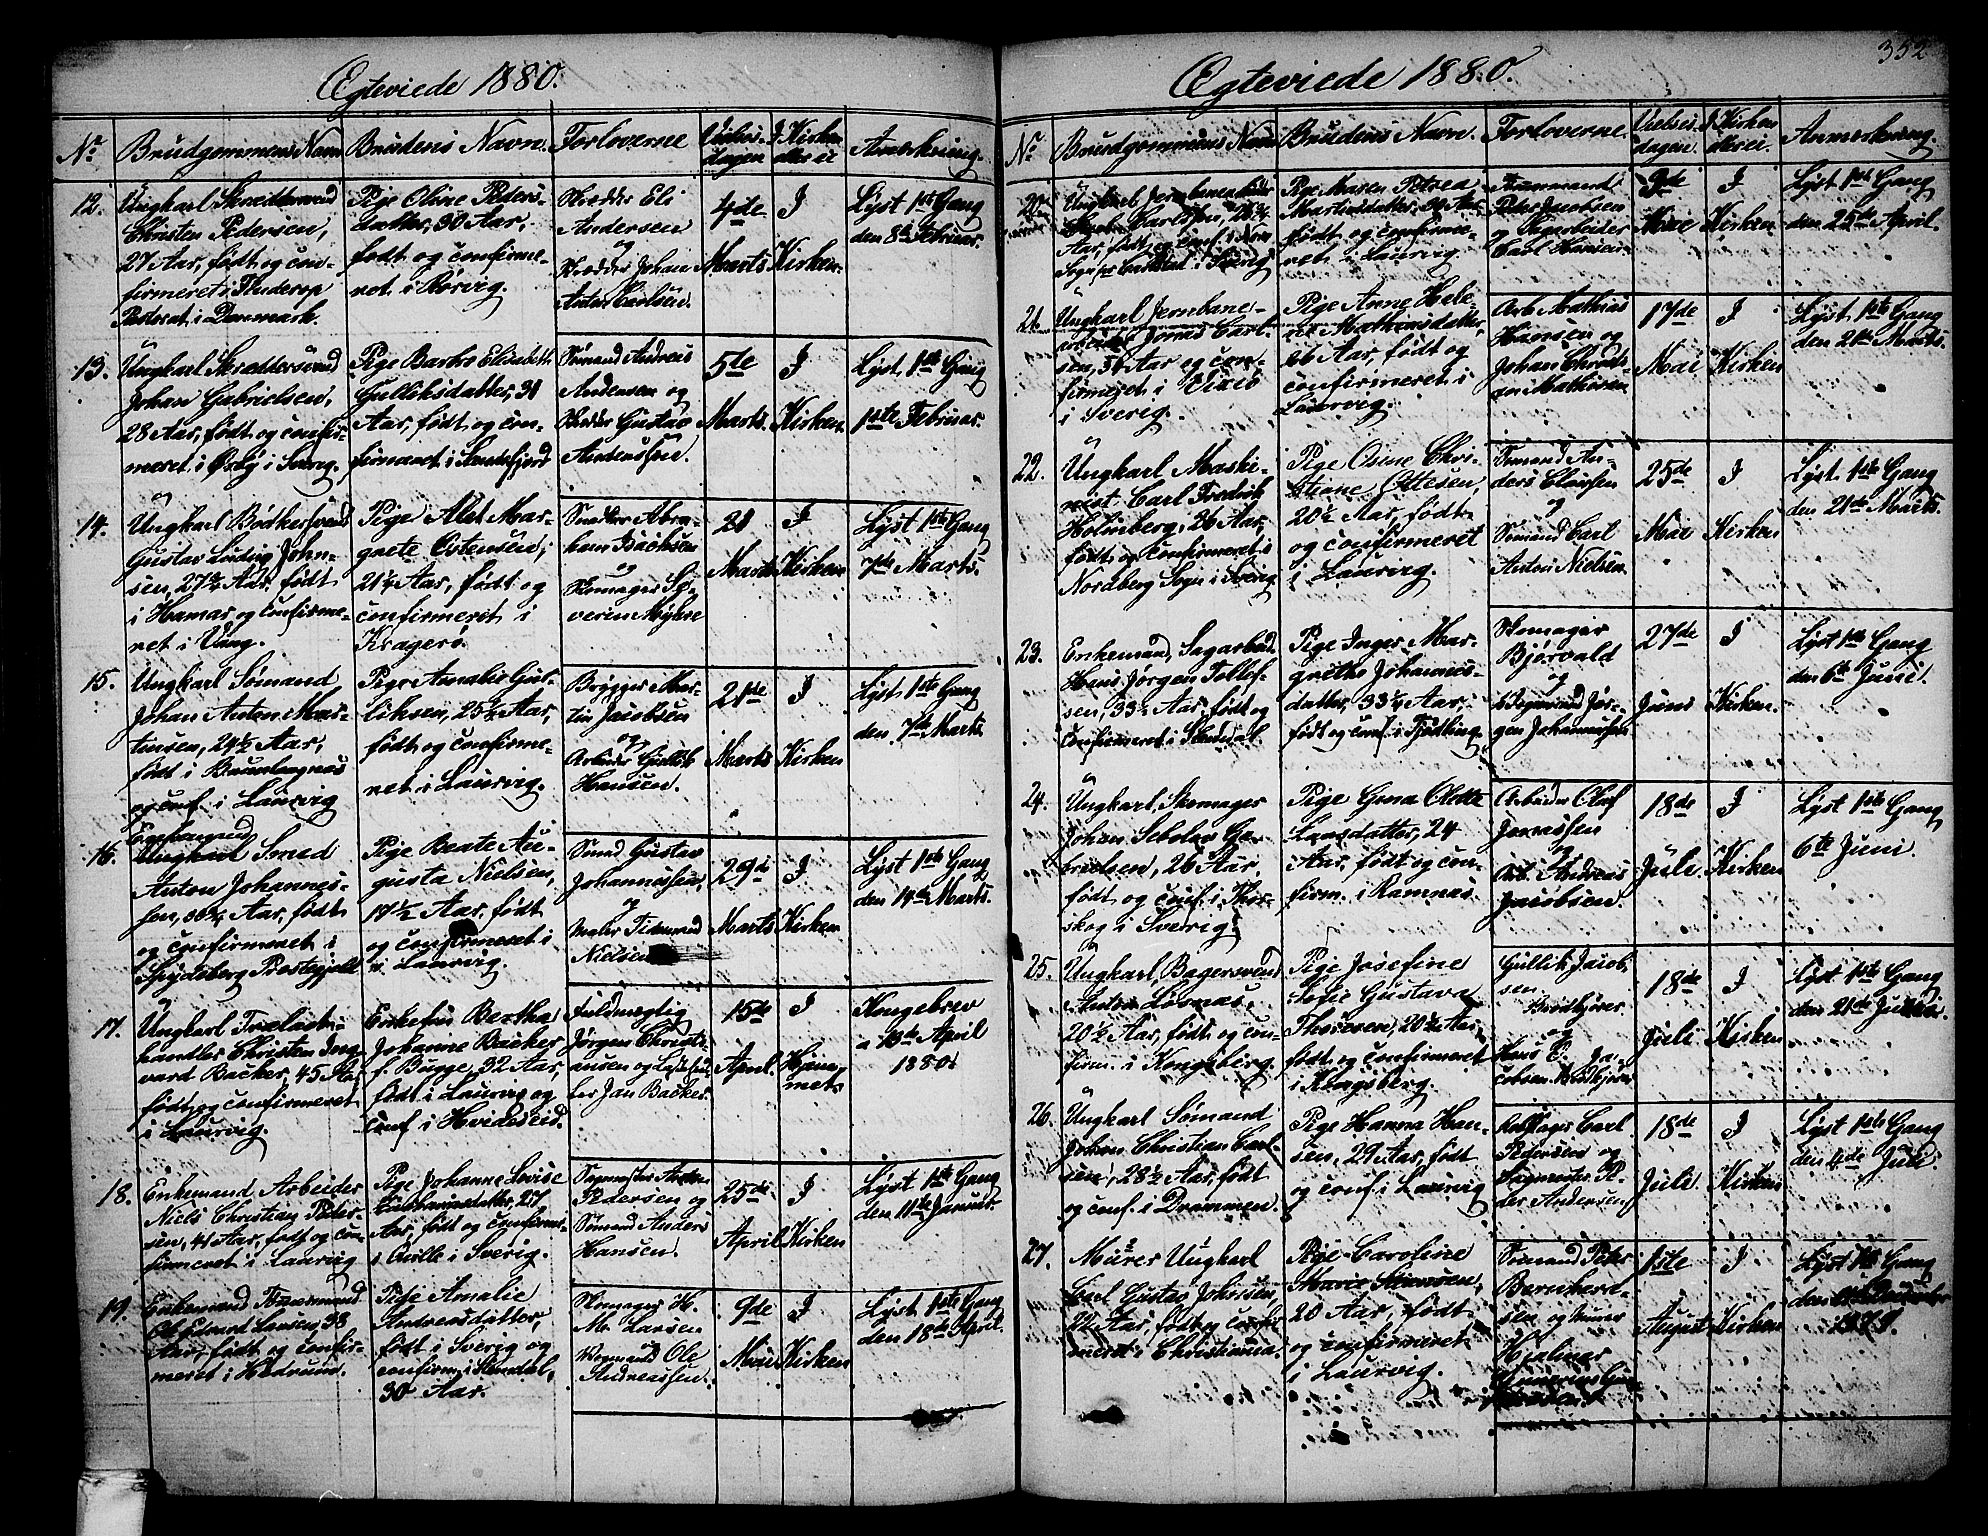 Ægteviede 1880.
No
Brudgommens Navn
Brudens Navn.
Forloverne
Vielses-
dagen
I Kirken
eller ei
Anmerkning.
12.
Ungkarl Skræddersvend
Christen Pedersen,
27 Aar, født og con-
firmeret i
Pastorat i Danmark.
Pige Oline Peders-
datter, 30 Aar,
født og confirme-
ret i Rørvig.
Skrædder Eli
Andersen
og
Skrædder Johan
Anton Carlsen.
4de
Marts
I
Kirken.
Lyst 1ste Gang
den 8de Februar.
13.
Ungkarl Skræddersvend
Johan Gabrielsen,
28 Aar, født og confir-
meret i Ørby i Sverig.
Pige Barbro Elisabeth
Gulliksdatter, 31
Aar, født og con-
firmeret i Sandefjord
Sømand Andreas
Andersen og
Skrædder Gustav
Anderssen.
5te
Marts.
I
Kirken.
Lyst 1ste Gang
1ste Februar.
14.
Ungkarl Bødkersvend
Gustav Ludvig John-
sen, 27 3/4 Aar, født
i Hamar og confirme-
ret i Vang.
Pige Alet Mar-
grete Ostensen,
21 1/4 Aar, født og
confirmeret i
Kragerø.
Snedker Abra-
ham Isacksen
og
Skomager Se-
verin Myhre
21
Marts
I
Kirken
Lyst 1ste Gang
7de Marts.
15.
Ungkarl Sømand
Johan Anton Mar-
tinsen, 24 1/2 Aar,
født i Brunlangnæs
og conf. i Laurvig
Pige Amalie Gul-
liksen, 25 1/4 Aar,
født og confirme-
ret i Laurvig.
Brygger Mar-
tin Jacobsen
og
Arbeider Gullik
Hansen.
21de
Marts
I
Kirken
Lyst 1ste Gang
den 7de Marts.
16.
Enkemand
Ungkarl Smed
Anton Johannes-
sen, 30 1/4 Aar, født
og confirmeret i
Spydeberg Præstegjeld
Pige Beate Au-
gusta Nielsen,
19 1/2 Aar, født
og confirmeret i
Laurvig.
Smed Gustav
Johannessen,
og
Maler Tidemand
Nielsen
29de
Marts
I
Kirken
Lyst 1ste Gang
den 14de Marts.
17.
Ungkarl Trælast-
handler Christen Ing-
vard Backer, 45 Aar,
født og confirmeret
i Laurvig.
Enkefru Bertha
Johanne Backer
f. Bugge, 32 Aar,
født i Laurvig og
conf i Hvideseid.
Fuldmægtig
Jørgen Christi-
ansen og
Jan Backer.
15de
April
I
Hjem-
met.
Kongebrev
a 13de April
1880.
18.
Enkemand Arbeider
Niels Christian Peder-
sen, 41 Aar, født og con-
firmeret i Laurvig
Pige Johanne Lovise
Aar, født og confirme-
i Qville i Sverig.
Sagmester Anders
Pedersen og
Sømand Anders
Hansen.
25de
April
I
Kirken
Lyst 1ste Gang
den 11te Januar.
19.
Enkemand Tømmermand
Ole Edvard Larsen, 38
Aar, født og confir-
meret i Hedrum.
Pige Amalie
Andreasdatter,
født i Sverig og
confirm. i Slemdal,
30 Aar.
Skomager H.
M. Larsen
Vognmand Ole
Andreassen.
9de
Mai
I
Kirken
Lyst 1ste Gang
den 18de April.
352
Ægteviede 1880.
No
Brudgommens Navn
Brudens Navn.
Forloverne.
Vielses-
dagen.
I Kirken
eller ei.
Anmerkning.
20.
Ungkarl Jernbanearbeider
Jacob Carlssen, 26 3/4
Aar, født og conf. i
Sogn pr Carlstad i Sverig
Pige Maren Petrea
Martinsdatter, 24 Aar
født og confirme-
ret i Laurvig.
Tømmermand
Peter Jacobsen
og Sagarbeider
Carl Hansen
9de
Mai
I
Kirken
Lyst 1ste Gang
den 25de April.
21.
Ungkarl Jernbane-
arbeider Jonas Carl-
sen, 34 Aar og con-
firmeret i Vixiö
i Sverig.
Pige Anne Hele-
ne Mathisdatter,
26 Aar, født og
confirmeret i
Laurvig.
Arb. Mathias
Hansen og
Johan Christi-
an Mathisen
17de
Mai
I
Kirken
Lyst 1ste Gang
den 21de Marts.
22.
Ungkarl Maski-
nist Carl Fredrik
Holmberg, 26 Aar,
født og confirmeret i
Nordberg Sogn i Sverig
Pige Osine Chri-
stiane Ottesen,
20 1/2 Aar, født
og confirmeret
i Laurvig.
Sømand An-
ders Clausen
og
Sømand Carl
Anton Nielsen
25de
Mai
I
Kirken
Lyst 1ste Gang
den 21de Marts.
23.
Enkemand, Sagarbeid.
Hans Jørgen Tollef-
sen, 33 1/2 Aar, født og
confirmeret i Slemdal
Pige Inger Mar-
grethe Johannes-
datter, 33 1/4 Aar,
født og conf. i Tjødling.
Skomager
Bjørvald
og
Vognmand Jør-
gen Johannessen
27de
Juni
I
Kirken.
Lyst 1ste Gang
den 6te Juni.
24.
Ungkarl, Skomager
Johan Ge-
brielsen, 26 Aar,
født og conf. i Thor-
skog i Sverig.
Pige Gena Olette
Larsdatter, 24
Aar, født og con-
firm. i Ramnæs.
Arbeider Olaf
Jonassen
og
Arb. Andreas
Jacobsen.
18de
Juli
I
Kirken
Lyst 1ste Gang
6te Juni.
25.
Ungkarl, Bagersvend
Anton Lomås,
20 1/2 Aar, født og con-
firm. i Kongsberg.
Pige Josefine
Sofie Gustava
Thoresen, 20 3/4 Aar,
født og confirmeret
i Kongsberg.
Gullik Jacob-
sen
Brødkjører
og
Hans C. Ja-
cobsen Brødkjører
18de
Juli
I
Kirken
Lyst 1ste Gang
den 21de Juni.
26.
Ungkarl Sømand
Johan Christian Carl-
sen, 28 1/2 Aar, født
og conf. i Drammen.
Pige Hanna Han-
sen, 29 Aar, født
og conf. i Laurvig
Carl
Pedersen og
Sagmester Pe-
der Andersen
18de
Juli
I
Kirken
Lyst 1ste Gang
den 4de Juli.
27.
Murer Ungkarl
Carl Gustav Johnsen,
22 Aar, født og confir-
meret i Christiania.
Pige Caroline
Marie Simensen,
20 Aar, født
og confirmeret
i Laurvig.
Sømand Peter
Bernhard-
sen og Murer
Hjalmar
1ste
August
I
Kirken
Lyst 1ste Gang
den
1879.